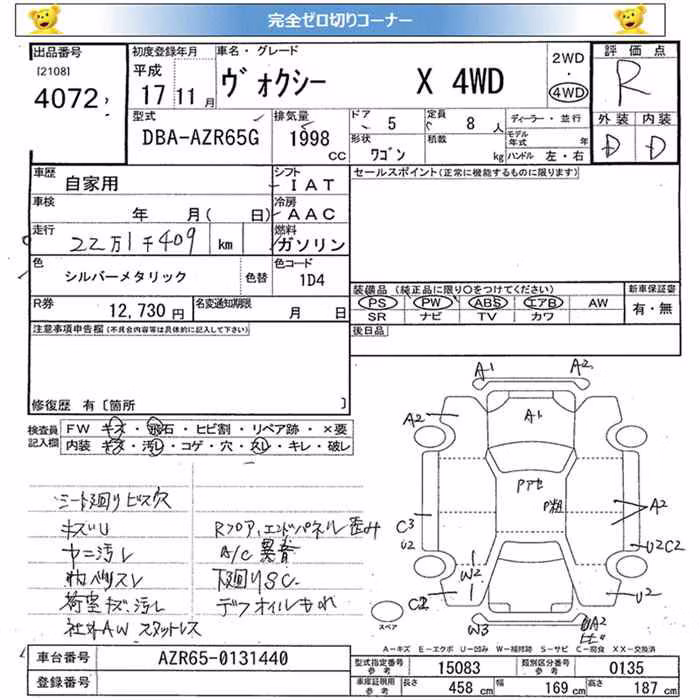 完全ゼロ切りコーナー
出品番号
[2108]
4072
初度登録年月
平成
17 11月
車名・グレード
ヴォクシー X 4WD
2WD
・
4WD
評価点
R
外装 内装
D D
型式
DBA-AZR65G
排気量
1998
CC
ドア
5
定員
8 人
形状
ワゴン
積載
kg
ディーラー・並行
モデル年式 年
ハンドル 左・右
車歴
自家用
シフト
IAT
車検
年 月( 日)
冷房
AAC
走行
22万1千409 km
燃料
ガソリン
色
シルバーメタリック
色替
色コード
1D4
R券
12,730 円
名変通知期限
月 日
セールスポイント(正常に機能するものに限ります)
装備品(純正品に限り○をつけてください)
新車保証書
PS PW ABS エアB AW
有・無
SR ナビ TV カワ
注意事項申告欄(不具合内容等は具体的に記入して下さい)
後日品
修復歴 有[箇所 ]
検査員記入欄
FW キズ・飛石・ヒビ割・リペア跡・×要
内装 キズ・汚れ・コゲ・穴・スレ・キレ・破レ
シート廻りビス穴
キズU
ヤニ汚レ
荷室キズ汚レ
社外AW スタットレス
Rフロア,エンドパネル歪み
A/C 異音
下廻りSC.
デフオイルもれ
A1 A2
A2
A1
Pアセ
P粗
A2
C3
U2
U2C2
W2
C2
U2
W3
BA2
ヒビ
スペア
A-キズ E-エクボ U-凹み W-補修跡 S-サビ C-腐食 XX-交換済
車台番号
AZR65-0131440
登録番号
型式指定番号
参考
15083
類別区分番号
参考
0135
車庫証明用
参考
長さ
458 cm
幅
169 cm
高さ
187 cm